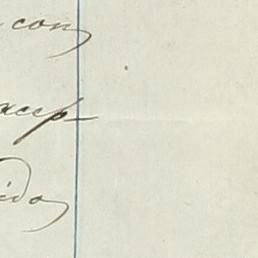 con
accep-
ido